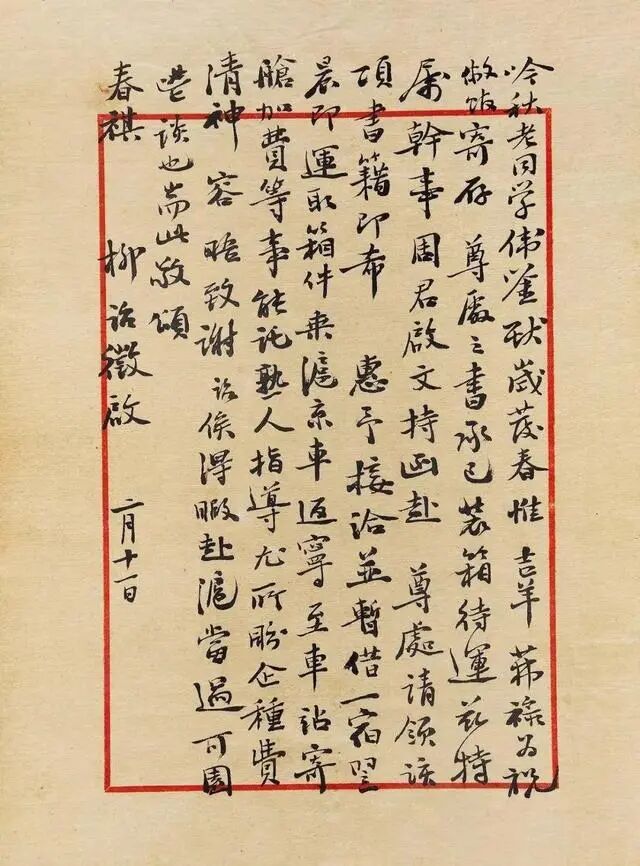 吟秋老同学伟鉴献岁发春惟 吉羊茀禄为祝
敝馆寄存 尊处之书承已装箱待运兹特
属幹事周君啟文持函赴 尊處請领該
項書籍即希 惠予接洽並暫借一宿翌
晨即運取箱件乘滬京車返寧至車站寄
艙加費等事能託熟人指導尤所盼企種費
清神 容晤致謝 詒俟得暇赴滬當過可園
暢談也耑此敬頌
春祺 柳詒徵啟 二月十一日